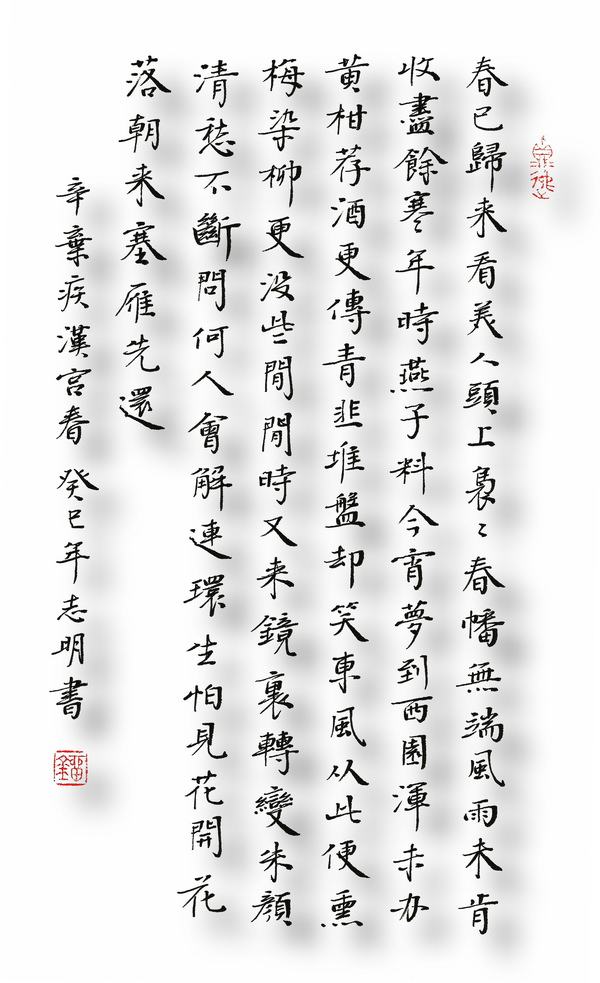 春已歸来看美人頭上裊〻春幡無端風雨未肯
收盡餘寒年時燕子料今宵夢到西園渾未办
黄柑荐酒更傳青韭堆盤却笑東風从此便熏
梅染柳更没些閒閒時又来鏡裏轉變朱顔
清愁不斷問何人會解連環生怕見花開花
落朝来塞雁先還
辛棄疾漢宮春 癸巳年志明書